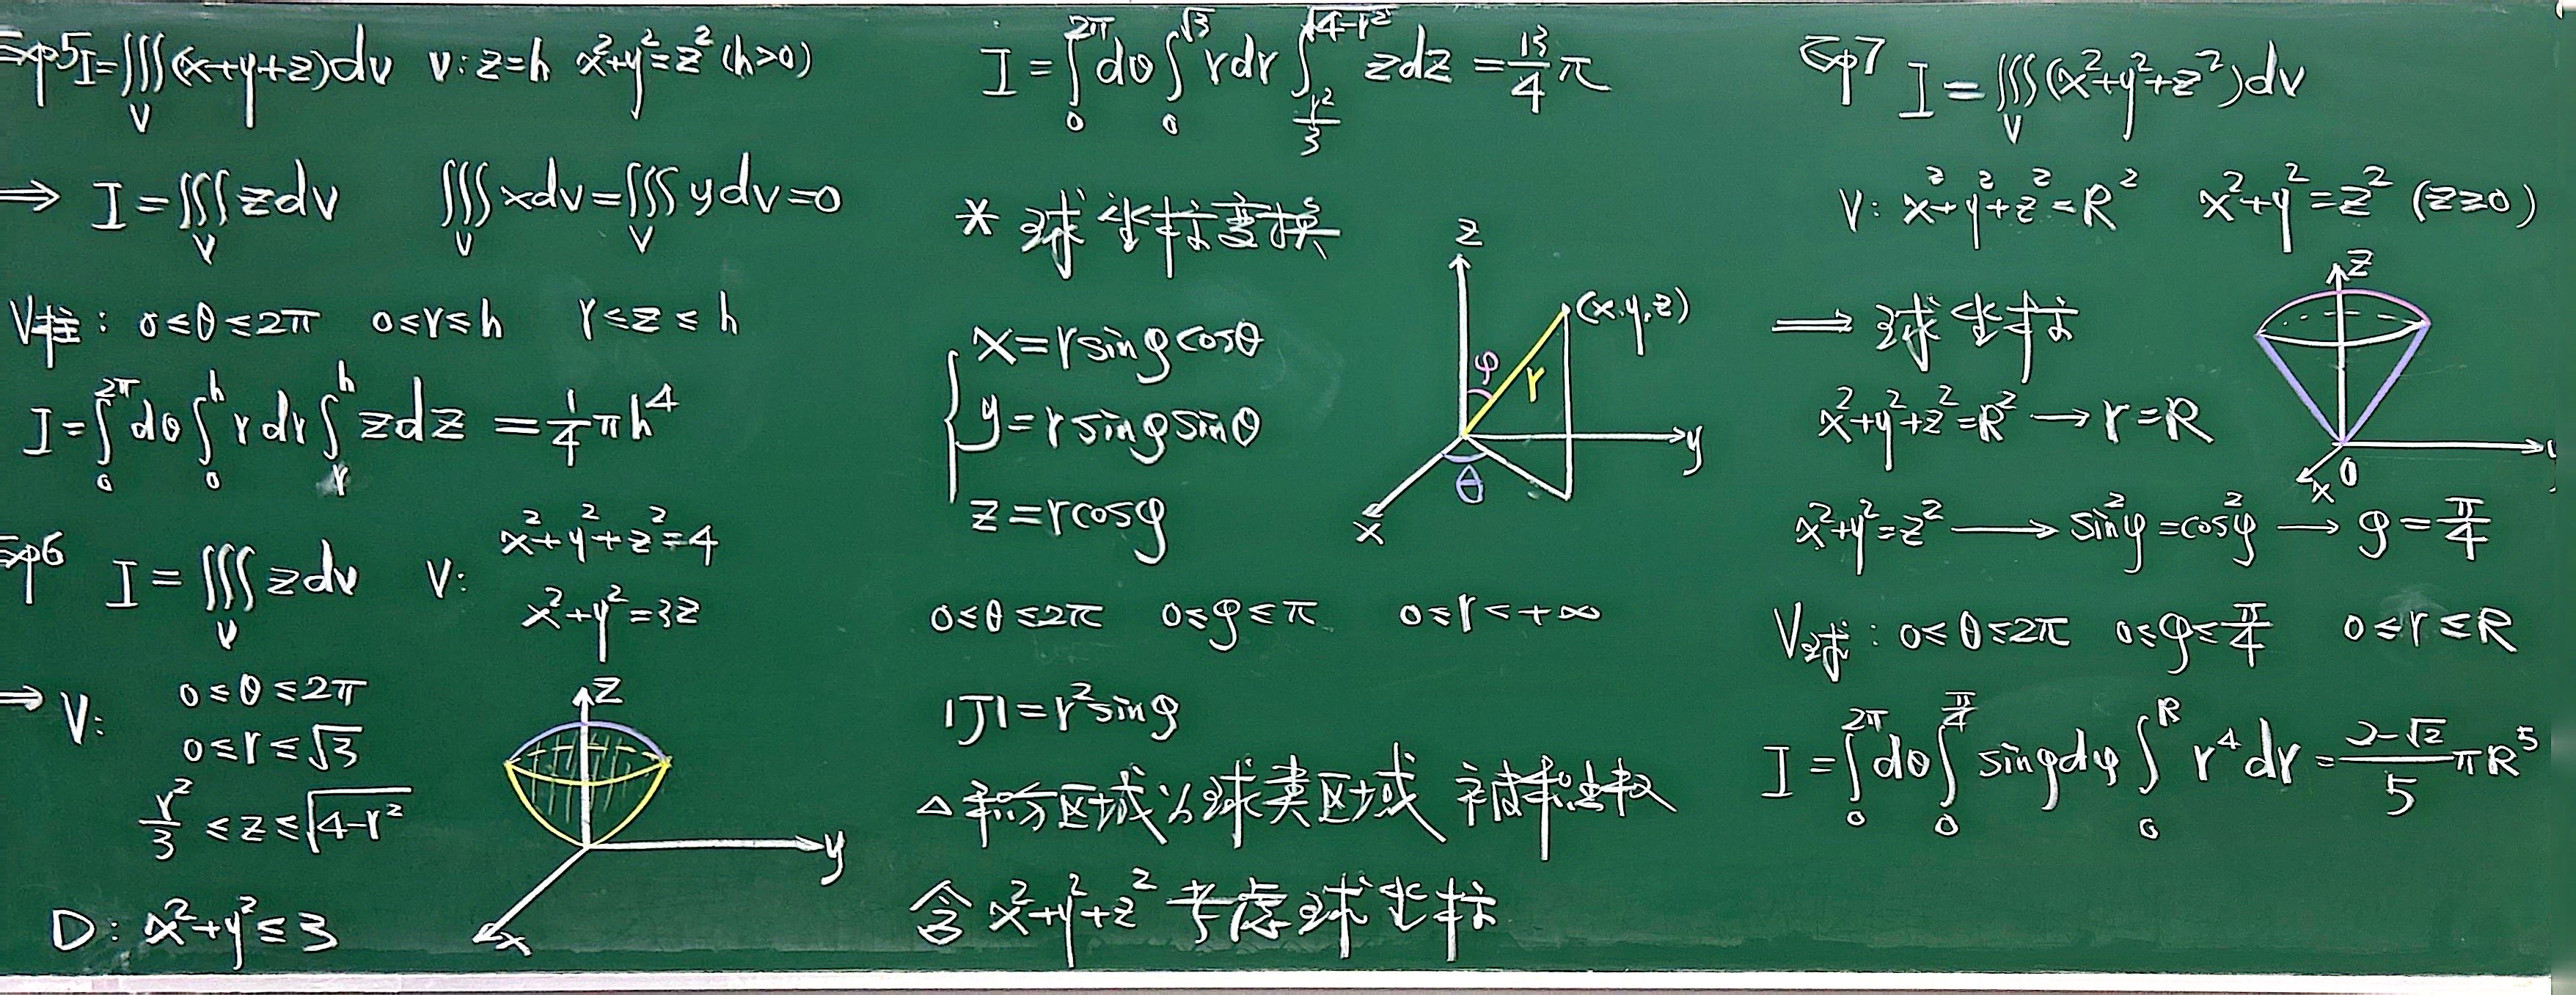 Exp5 I=∭_V(x+y+z)dv V: z=h x²+y²=z² (h>0)
⇒ I=∭_V zdv ∭_V xdv=∭_V ydv=0
V柱: 0≤θ≤2π 0≤r≤h r≤z≤h
I=∫₀^{2π}dθ∫₀^h rdr∫_r^h zdz = 1/4 πh⁴
Exp6 I=∭_V zdv V: x²+y²+z²=4
x²+y²=3z
⇒ V: 0≤θ≤2π
0≤r≤√3
r²/3 ≤z≤√(4-r²)
z
y
x
D: x²+y²≤3
I=∫₀^{2π}dθ∫₀^{√3} rdr∫_{r²/3}^{√(4-r²)} zdz = 13/4 π
* 球坐标变换
x=rsinφcosθ
y=rsinφsinθ
z=rcosφ
z
(x,y,z)
φ
r
y
θ
x
0≤θ≤2π 0≤φ≤π 0≤r<+∞
|J|=r²sinφ
△积分区域为球类区域 被积函数
含x²+y²+z² 考虑球坐标
Exp7 I=∭_V(x²+y²+z²)dv
V: x²+y²+z²=R² x²+y²=z² (z≥0)
⇒ 球坐标
z
x²+y²+z²=R² → r=R
x 0
x²+y²=z² → sin²φ=cos²φ → φ=π/4
V球: 0≤θ≤2π 0≤φ≤π/4 0≤r≤R
I=∫₀^{2π}dθ∫₀^{π/4} sinφdφ∫₀^R r⁴dr = (2-√2)/5 πR⁵